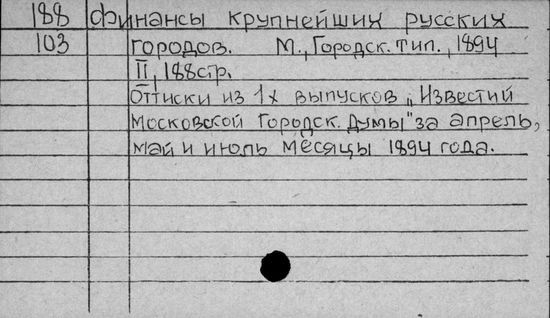 188 Финансы крупнейших русских
103 городов. М., Городск. тип., 1894
II, 188стр.
Оттиски из 1х выпусков „Известий
Московской Городск. Думы" за апрель,
май и июль месяцы 1894 года.